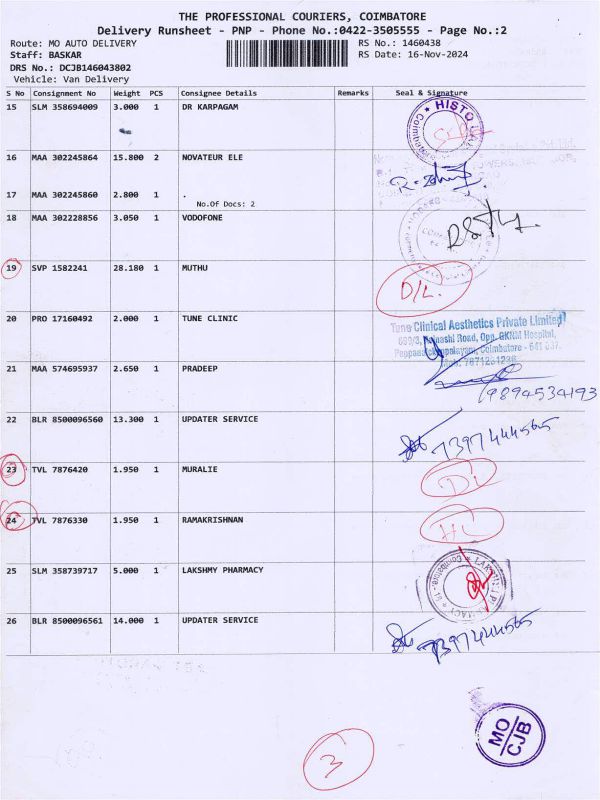 THE PROFESSIONAL COURIERS, COIMBATORE
Delivery Runsheet - PNP - Phone No.:0422-3505555 - Page No.:2
Route: MO AUTO DELIVERY RS No.: 1460438
Staff: BASKAR RS Date: 16-Nov-2024
DRS No.: DCJB146043802
Vehicle: Van Delivery
S No Consignment No Weight PCS Consignee Details Remarks Seal & Signature
15 SLM 358694009 3.000 1 DR KARPAGAM
HISTO
16 MAA 302245864 15.800 2 NOVATEUR ELE
17 MAA 302245860 2.800 1 .
No.Of Docs: 2
18 MAA 302228856 3.050 1 VODOFONE
19 SVP 1582241 28.180 1 MUTHU
D/L.
20 PRO 17160492 2.000 1 TUNE CLINIC
Tune Clinical Aesthetics Private Limited
Road, Opp. GKNM Hospital,
Coimbatore - 641 037.
21 MAA 574695937 2.650 1 PRADEEP
9894534193
22 BLR 8500096560 13.300 1 UPDATER SERVICE
7397444565
23 TVL 7876420 1.950 1 MURALIE
DL
24 TVL 7876330 1.950 1 RAMAKRISHNAN
25 SLM 358739717 5.000 1 LAKSHMY PHARMACY
26 BLR 8500096561 14.000 1 UPDATER SERVICE
7397444565
MO
CJB
3